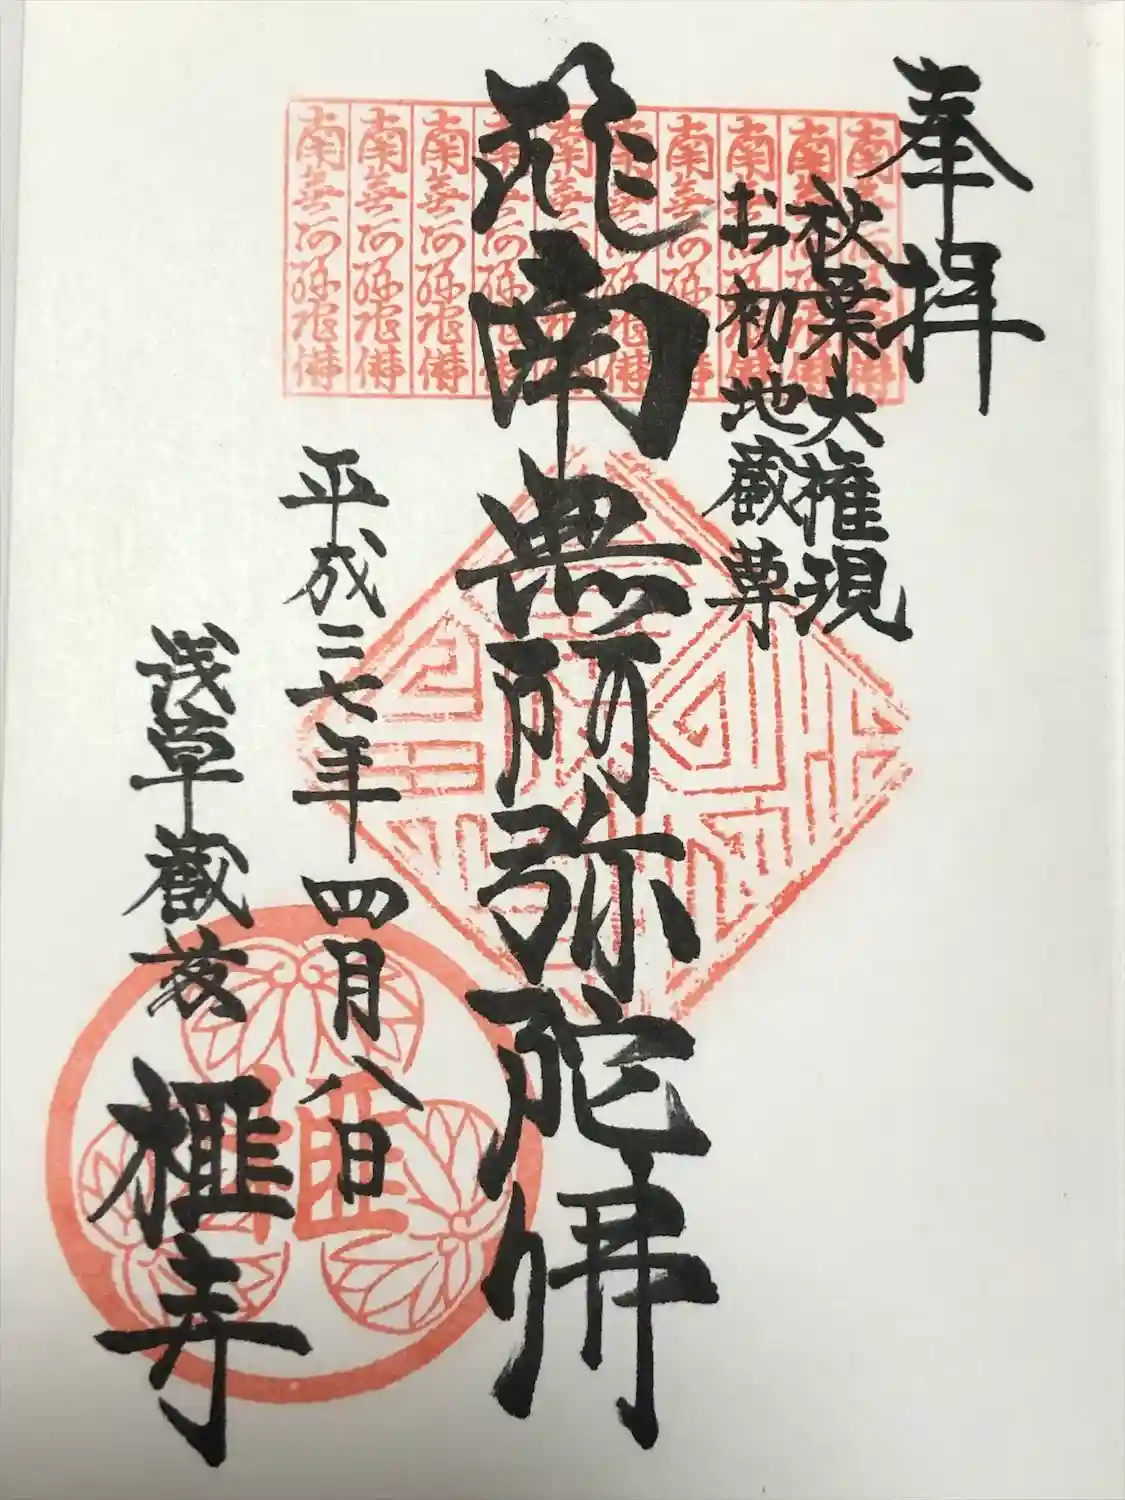 奉拝
秋葉大権現
お初地蔵尊
南無阿弥陀佛
平成二七年四月八日
浅草蔵前 榧寺
南無阿弥陀佛
南無阿弥陀佛
南無阿弥陀佛
南無阿弥陀佛
南無阿弥陀佛
南無阿弥陀佛
南無阿弥陀佛
南無阿弥陀佛
南無阿弥陀佛
南無阿弥陀佛
榧